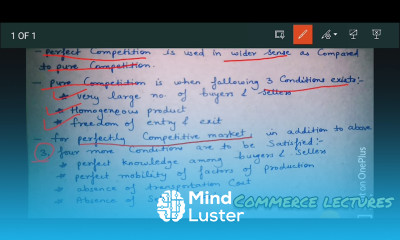 1 OF 1
- Perfect Competition is used in wider sense as compared
to pure competition.
- Pure Competition is when following 3 Conditions exists:-
* Very large no of buyers & Sellers
* Homogeneous product
* freedom of entry & exit
- for perfectly Competitive market, in addition to above
3, four more Conditions are to be Satisfied:-
* perfect knowledge among buyers & Sellers
* perfect mobility of factors of production
* absence of transportation Cost
* Absence of
Mind
Luster
COMMERCE LECTURES
on OnePlus